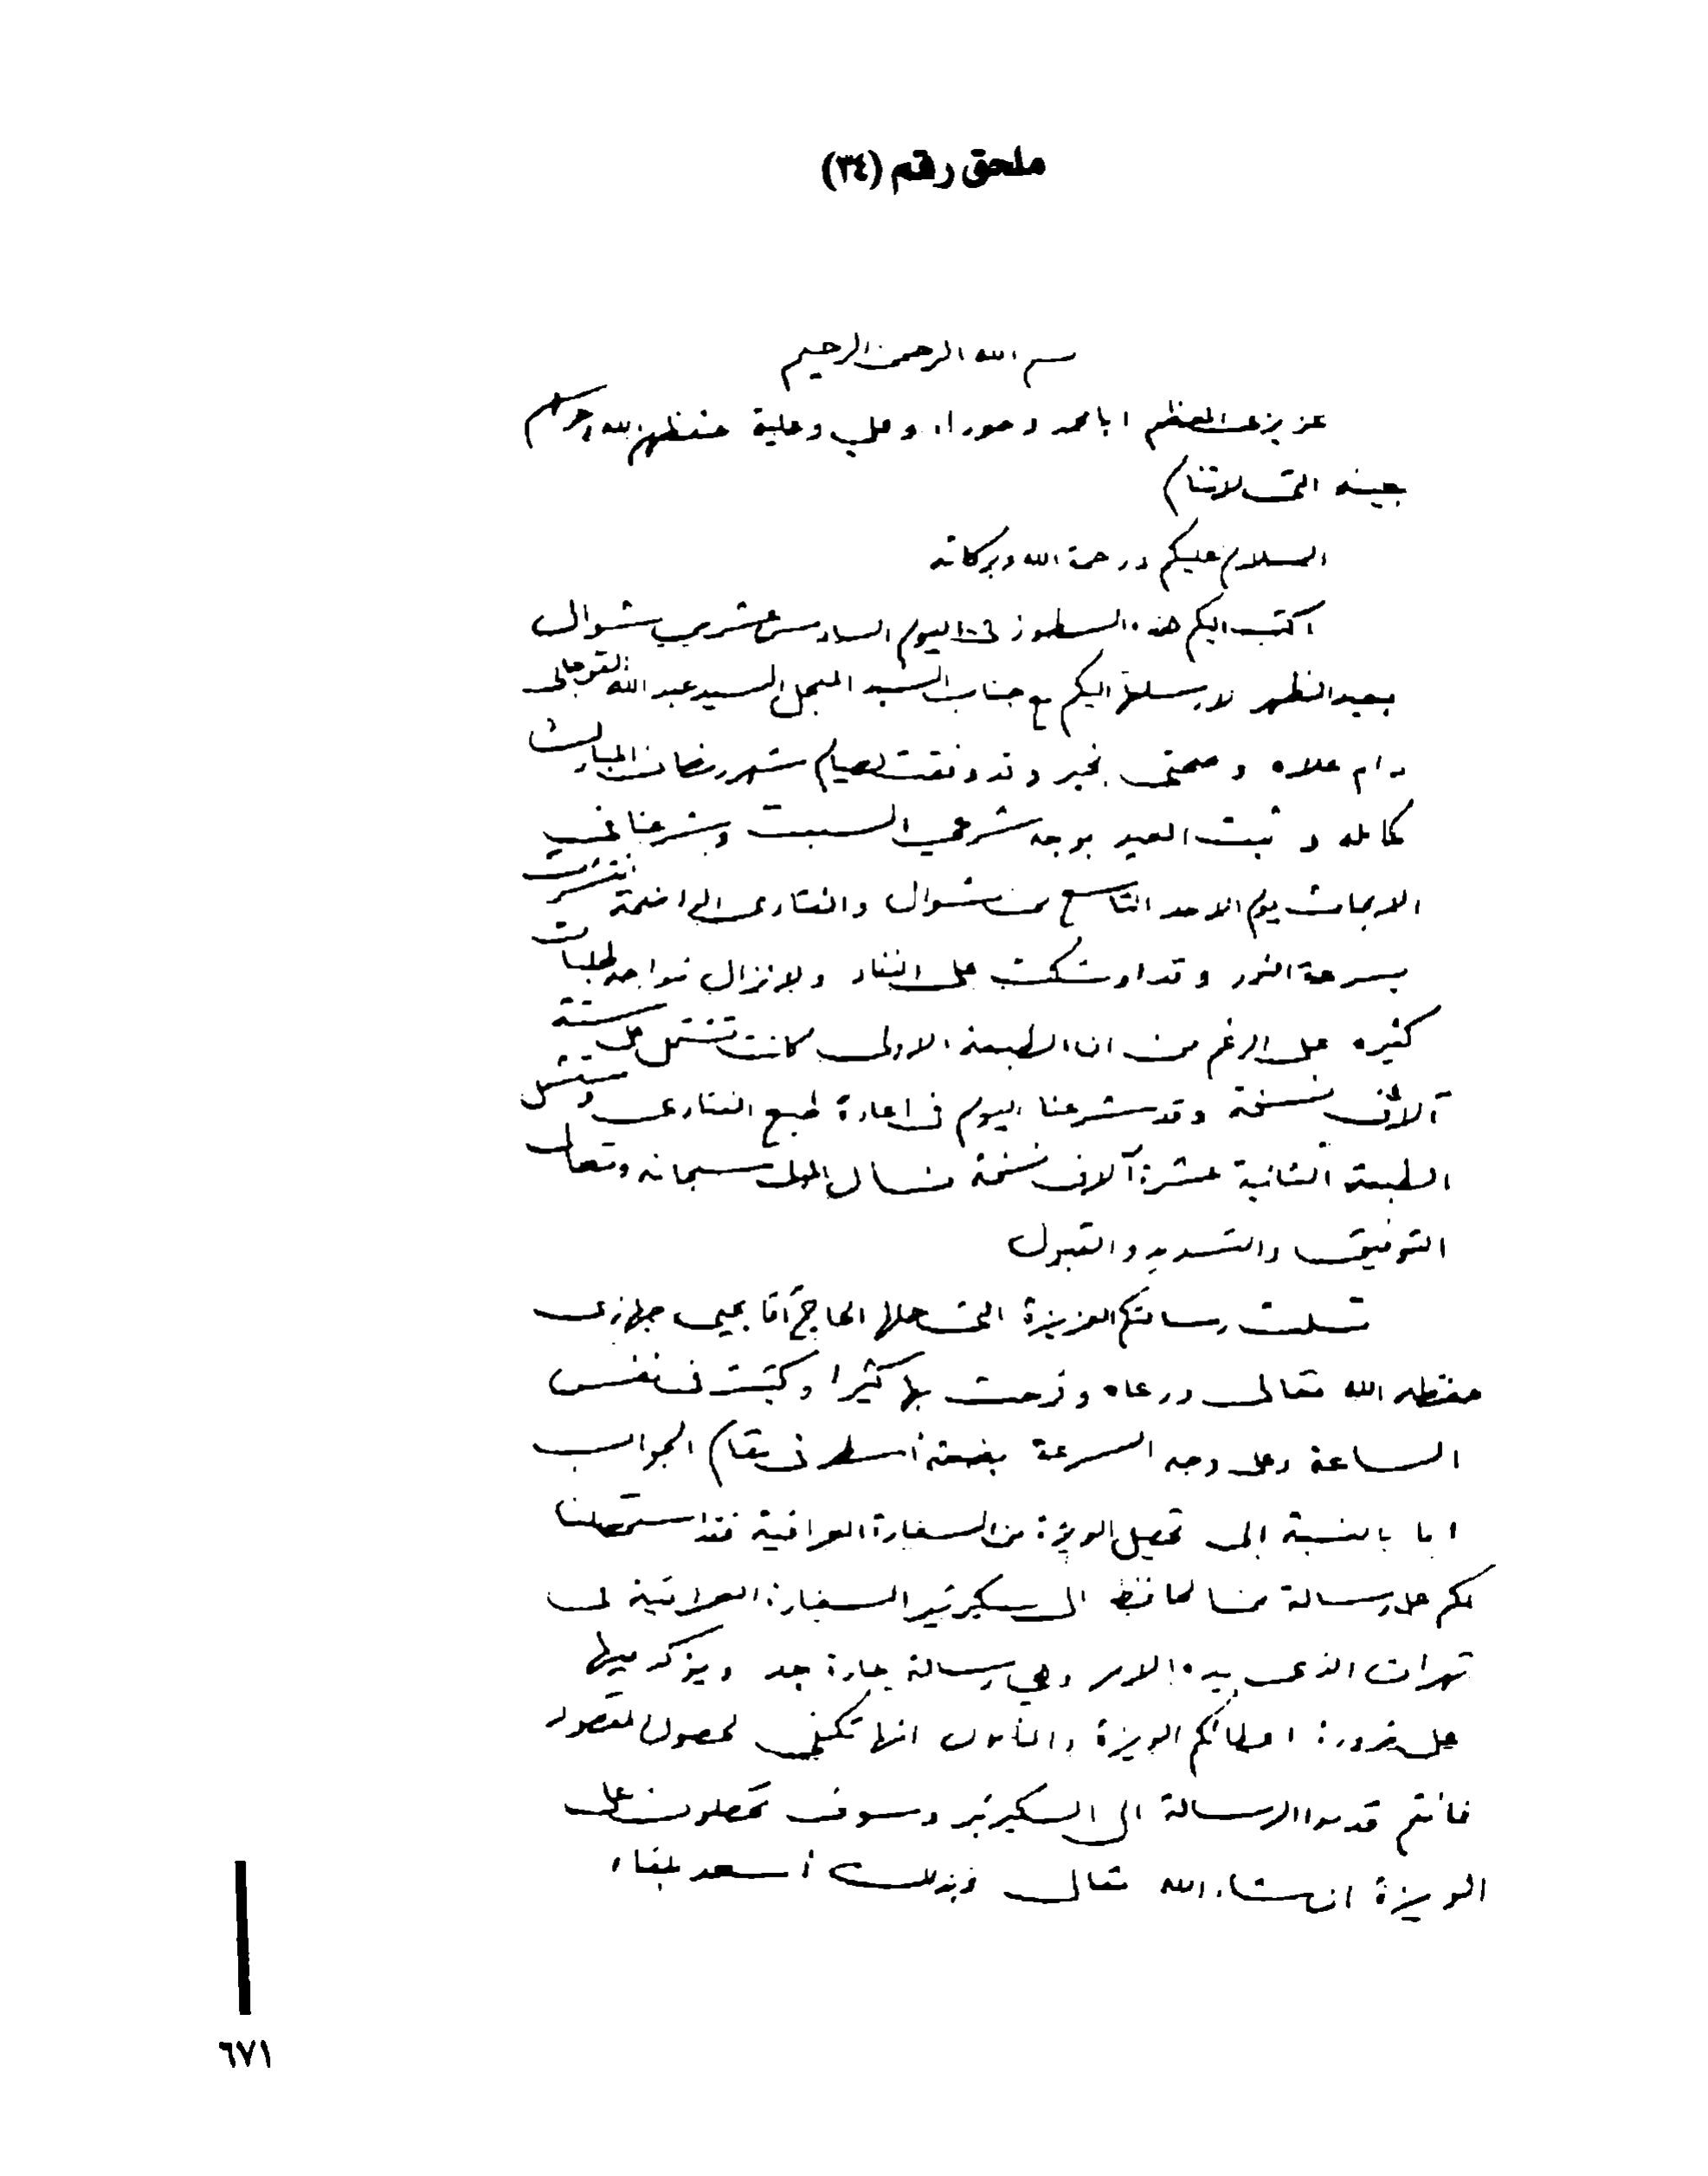 ملحق رقم (٣٤)
بسم الله الرحمن الرحيم
عزيزي المعظم ابا محمد وحوراء وعلي وعلية حفظهم الله وحرسكم
بعينه التي لا تنام
السلام عليكم ورحمة الله وبركاته
اكتب اليكم هذه السطور في اليوم السادس عشر من شوال
بعيد الظهر لارسلها اليكم مع جناب السيد المبجل السيد عبد الله
دام علاه وصحتي بخير وقد وفقت لصيام شهر رمضان المبارك
كاملا وثبت العيد بوجه شرعي السبت وشرعنا في
الابحاث يوم الاحد التاسع من شوال والفتاوى الواضحة انتشرت
بسرعة النور وقد اوشكت على النفاد ولا نزال نواجه طلبات
كثيره على الرغم من ان الطبعة الاولى كانت تشتمل على ستة
آلاف نسخة وقد شرعنا اليوم في اعادة طبع الفتاوى وستشمل
الطبعة الثانية عشرة آلاف نسخة نسال المولى سبحانه وتعالى
التوفيق والتسديد والقبول
تسلمت رسالتكم العزيزة التي حملها الحاج آقا يحيى
حفظه الله تعالى ورعاه وفرحت بها كثيرا وكتبت في نفس
الساعة وعلى وجه السرعة بضعة أسطر في مقام الجواب
اما بالنسبة إلى تحصيل الويزة من السفارة العراقية فقد استحصلنا
لكم على رسالة من المحافظ الى سكرتير السفارة العراقية في
تهران الذي بيده الامر وهي رسالة حارة جد ويؤكد فيها
على ضرورة اعطائكم الويزة والمأمول انها تكفي لحصول المقصود
فانتم قدموا الرسالة الى السكرتير وسوف تحصلون على
الويزة ان شاء الله تعالى وبذلك أسعد بلقاء
٦٧١